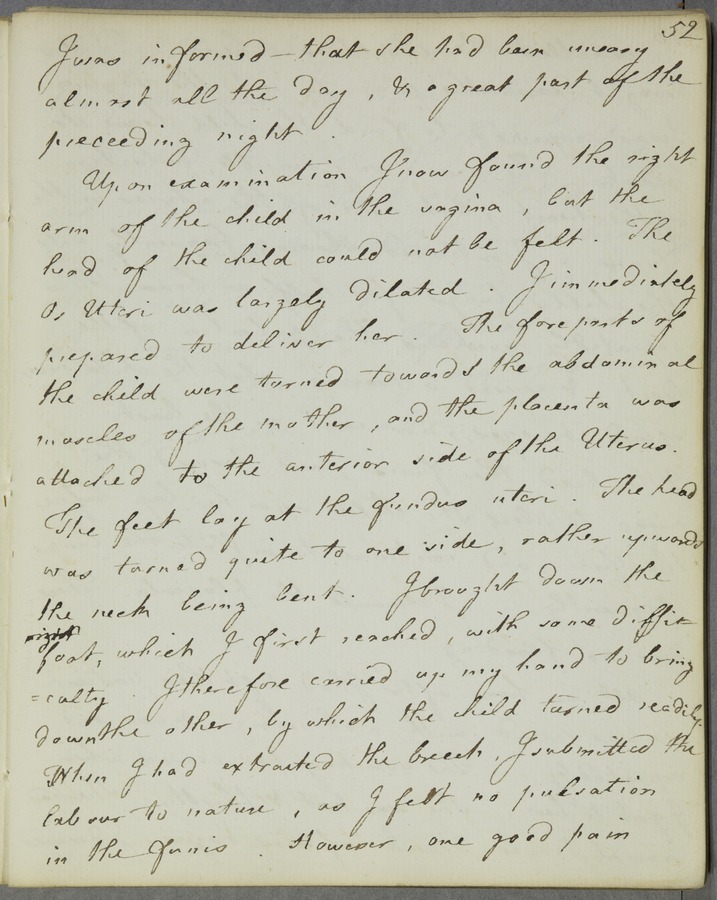 52
I was informed - that she had been uneasy
almost all the day, & a great part of the
preceeding night.
Upon examination I now found the right
arm of the child in the vagina, but the
head of the child could not be felt. The
Os Uteri was largely dilated. I immediately
prepared to deliver her. The foreparts of
the child were turned towards the abdominal
muscles of the mother, and the placenta was
attached to the anterior side of the Uterus.
The feet lay at the fundus uteri. The head
was turned quite to one side, rather upwards
the neck being bent. I brought down the
right
foot, which I first reached, with some diffi=
=culty. I therefore carried up my hand to bring
down the other, by which the child turned readily.
When I had extracted the breech, I submitted the
labour to nature, as I felt no pulsation
in the funis. However, one good pain